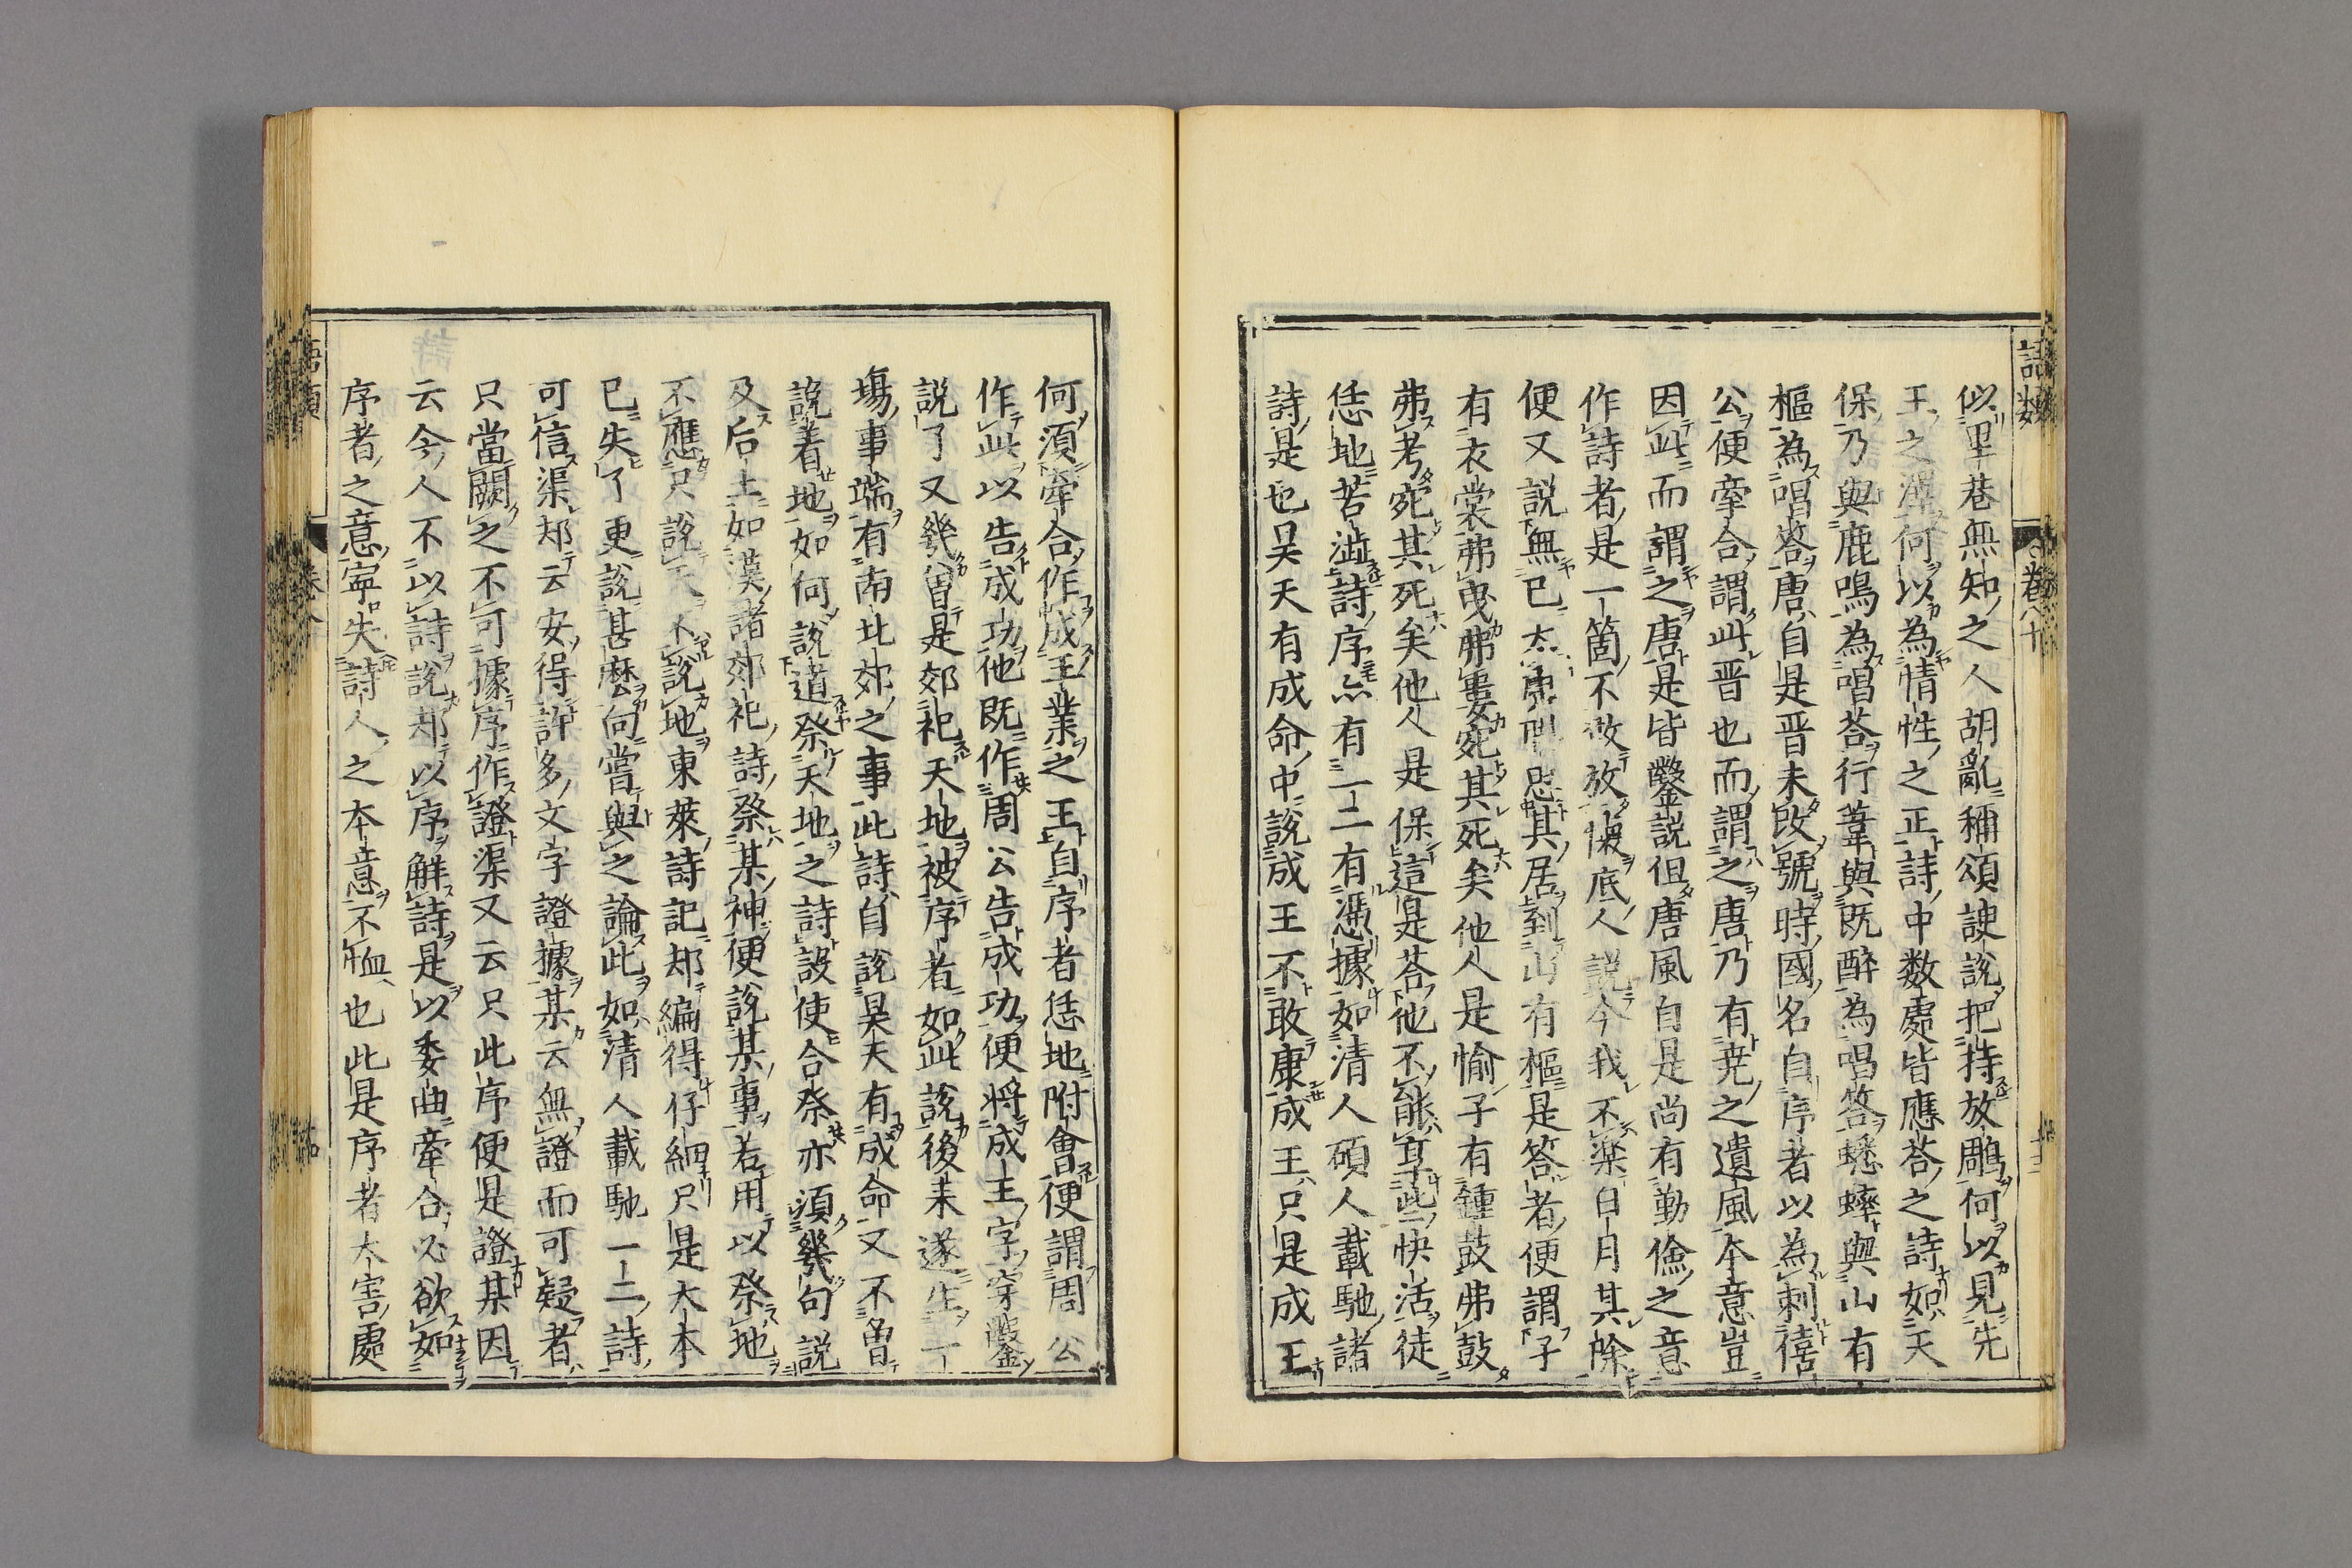 語類
卷八十
似里巷無知之人胡亂稱頌諛說把持放鵰何以見先
王之澤何以為情性之正詩中数處皆應荅之詩如天
保乃與鹿鳴為唱荅行葦與既醉為唱答蟋蟀與山有
樞為唱荅唐自是晋未改號時國名自序者以為刺僖
公便牽合謂此晋也而謂之唐乃有尭之遺風本意豈
因此而謂之唐是皆鑿説但唐風自是尚有勤儉之意
作詩者是一箇不敢放懐底人説今我不楽日月其除
便又説無已太康職思其居到山有樞是答者便謂子
有衣裳弗曳弗婁宛其死矣他人是愉子有鍾鼓弗鼓
弗考宛其死矣他人是保這是荅他不能享些快活徒
恁地苦澁詩序亦有一二有憑據如清人碩人載馳諸
詩是也昊天有成命中説成王不敢康成王只是成王
何須牽合作成王業之王自序者恁地附會便謂周公
作此以告成功他既作周公告成功便將成王字穿鑿
説了又幾曾是郊祀天地被序者如此說後来遂生一
塲事端有南北郊之事此詩自說昊天有成命又不曾
說着地如何說道祭天地之詩設使合祭亦須幾句説
及后土如漢諸郊祀詩祭某神便說某事若用以祭地
不應只說天不說地東萊詩記却編得仔細只是大本
已失了更說甚麽向嘗與之論此如清人載馳一二詩
可信渠却云安得許多文字證據某云無證而可疑者
只當闕之不可據序作證渠又云只此序便是證某因
云今人不以詩說詩却以序解詩是以委曲牽合必欲如
序者之意寧失詩人之本意不恤也此是序者大害處